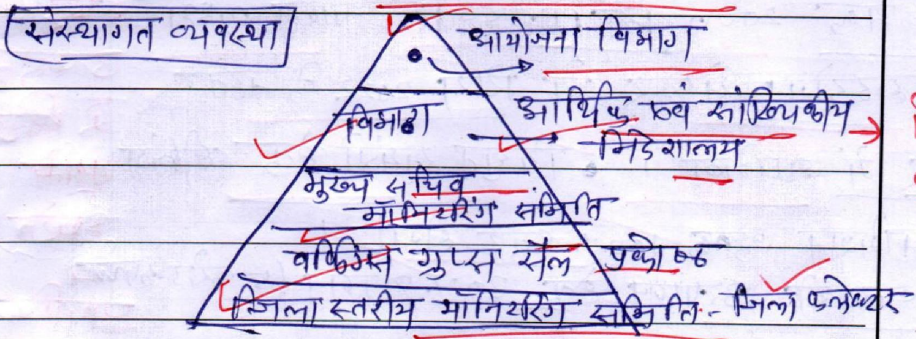 संस्थागत व्यवस्था
आयोजना विभाग
विभाग
आर्थिक एवं सांख्यिकीय
निदेशालय
मुख्य सचिव
मॉनिटरिंग समिति
वर्किंग ग्रुप्स सैल प्रकोष्ठ
जिला स्तरीय मॉनिटरिंग समिति - जिला कलेक्टर